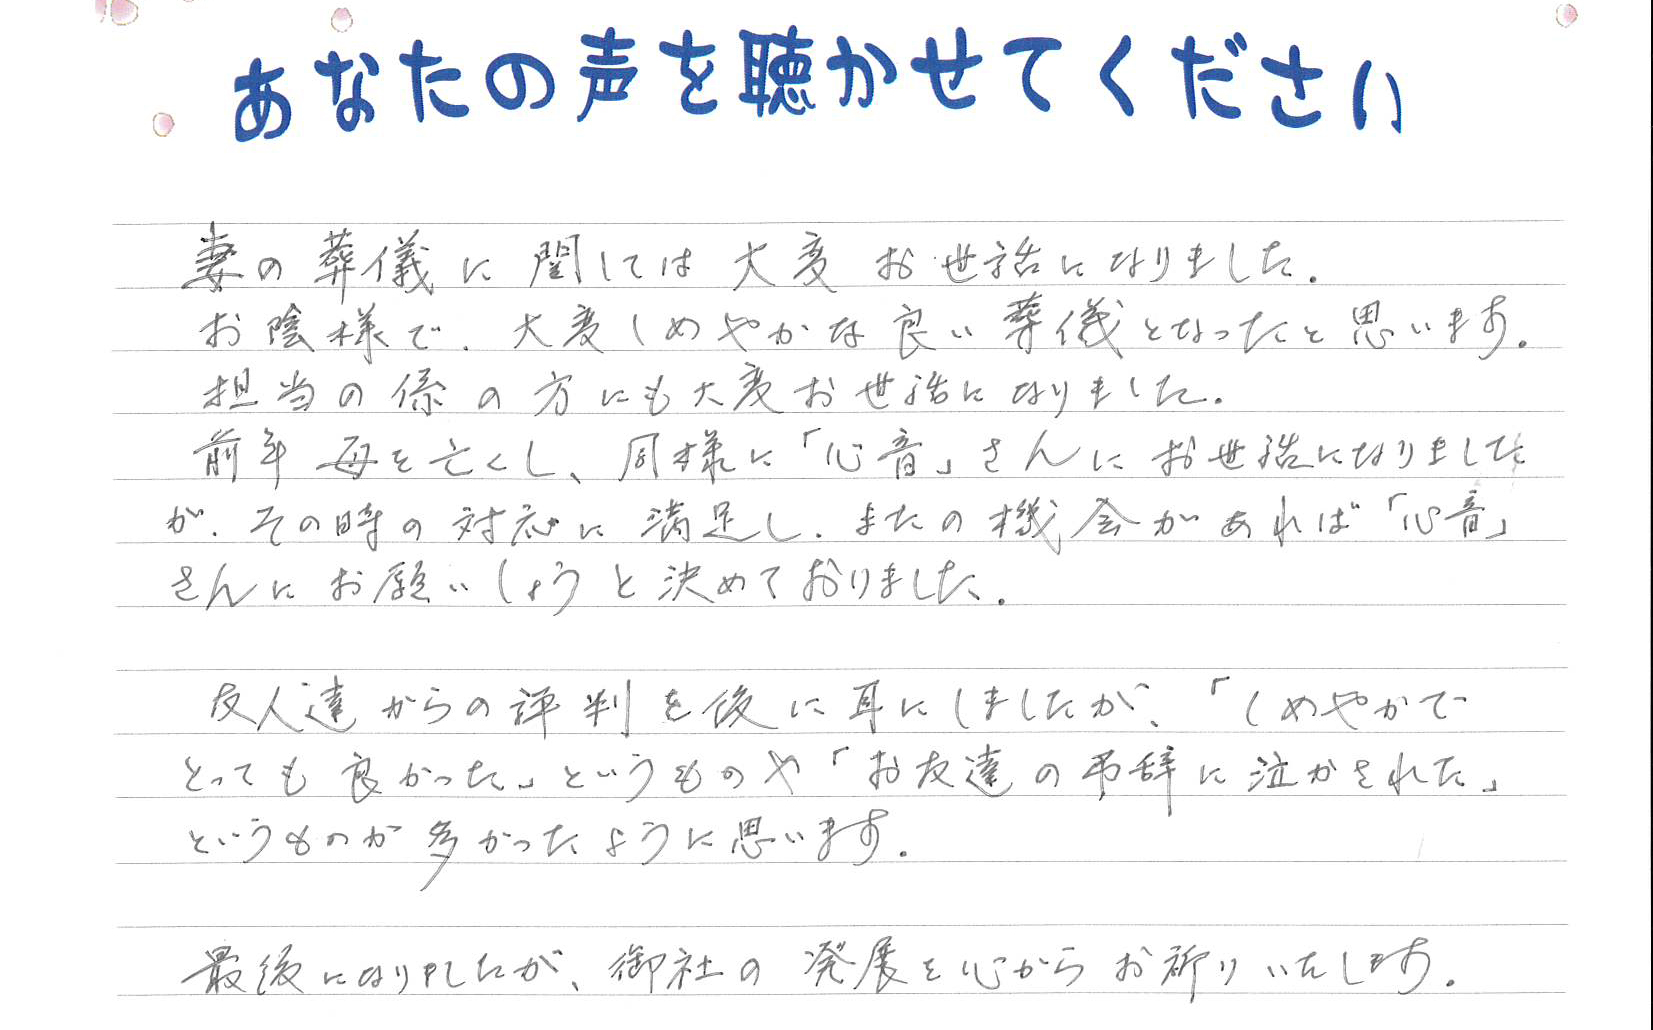 あなたの声を聴かせてください
妻の葬儀に関しては大変お世話になりました.
お陰様で.大変しめやかな良い葬儀となったと思います.
担当の係の方にも大変お世話になりました.
前年 母を亡くし、同様に「心音」さんにお世話になりました
が.その時の対応に満足し.またの機会があれば「心音」
さんにお願いしようと決めておりました.
友人達からの評判を後に耳にしましたが、「しめやかで
とっても良かった」というものや「お友達の弔辞に泣かされた」
というものが多かったように思います.
最後になりましたが、御社の発展を心からお祈りいたします.